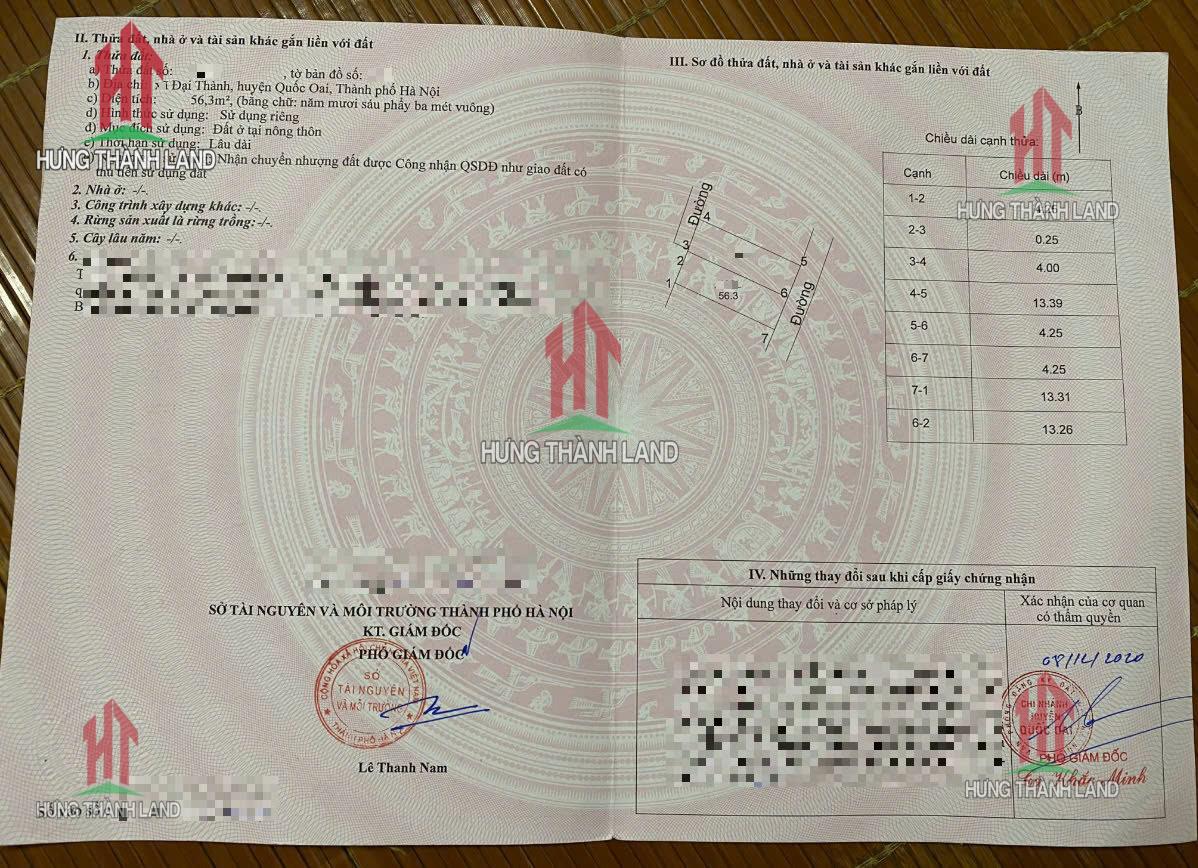 II. Thửa đất, nhà ở và tài sản khác gắn liền với đất
1. Thửa đất:
a) Thửa đất số: , tờ bản đồ số:
b) Địa chỉ: Đại Thành, huyện Quốc Oai, Thành phố Hà Nội
c) Diện tích: 56,3m², (bằng chữ: năm mươi sáu phẩy ba mét vuông)
d) Hình thức sử dụng: Sử dụng riêng
đ) Mục đích sử dụng: Đất ở tại nông thôn
e) Thời hạn sử dụng: Lâu dài
Nhận chuyển nhượng đất được Công nhận QSDĐ như giao đất có
thu tiền sử dụng đất
2. Nhà ở: -/-.
3. Công trình xây dựng khác: -/-.
4. Rừng sản xuất là rừng trồng: -/-.
5. Cây lâu năm: -/-.
6.
HƯNG THÀNH LAND
III. Sơ đồ thửa đất, nhà ở và tài sản khác gắn liền với đất
B
Đường
4
3
2
1
5
6
7
56.3
Đường
Chiều dài cạnh thửa:
Cạnh Chiều dài (m)
1-2
2-3 0.25
3-4 4.00
4-5 13.39
5-6 4.25
6-7 4.25
7-1 13.31
6-2 13.26
HƯNG THÀNH LAND
HƯNG THÀNH LAND
SỞ TÀI NGUYÊN VÀ MÔI TRƯỜNG THÀNH PHỐ HÀ NỘI
KT. GIÁM ĐỐC
PHÓ GIÁM ĐỐC
SỞ
TÀI NGUYÊN
VÀ MÔI TRƯỜNG
THÀNH PHỐ HÀ NỘI
Lê Thanh Nam
HƯNG THÀNH LAND
IV. Những thay đổi sau khi cấp giấy chứng nhận
Nội dung thay đổi và cơ sở pháp lý
Xác nhận của cơ quan
có thẩm quyền
08/12/2020
CHI NHÁNH
HUYỆN
QUỐC OAI
PHÓ GIÁM ĐỐC
Khắc Minh
HƯNG THÀNH LAND